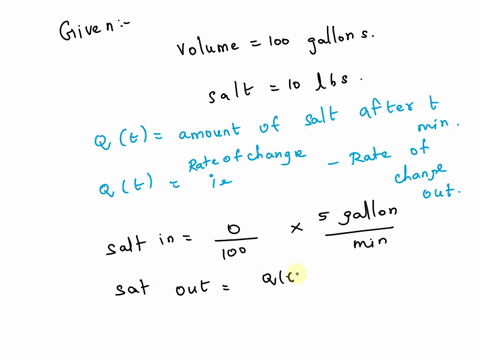 Given:-
Volume = 100 gallons.
Salt = 10 lbs.
Q(t) = amount of salt after t min.
Q(t) = Rate of change ie - Rate of change out.
Salt in = 0/100 × 5 gallon/min
Sat out = Q(t